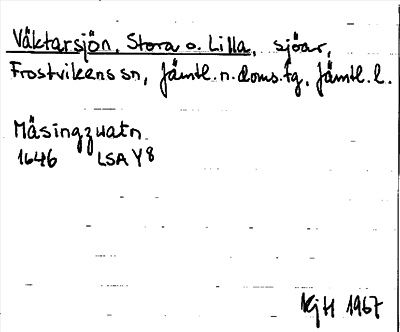 Väktarsjön, Stora o. Lilla, sjöar,
Frostvikens sn, Jämtl. n. doms.tg, Jämtl. l.
Mäsingzwatn
1646 LSA Y8
KgH 1967